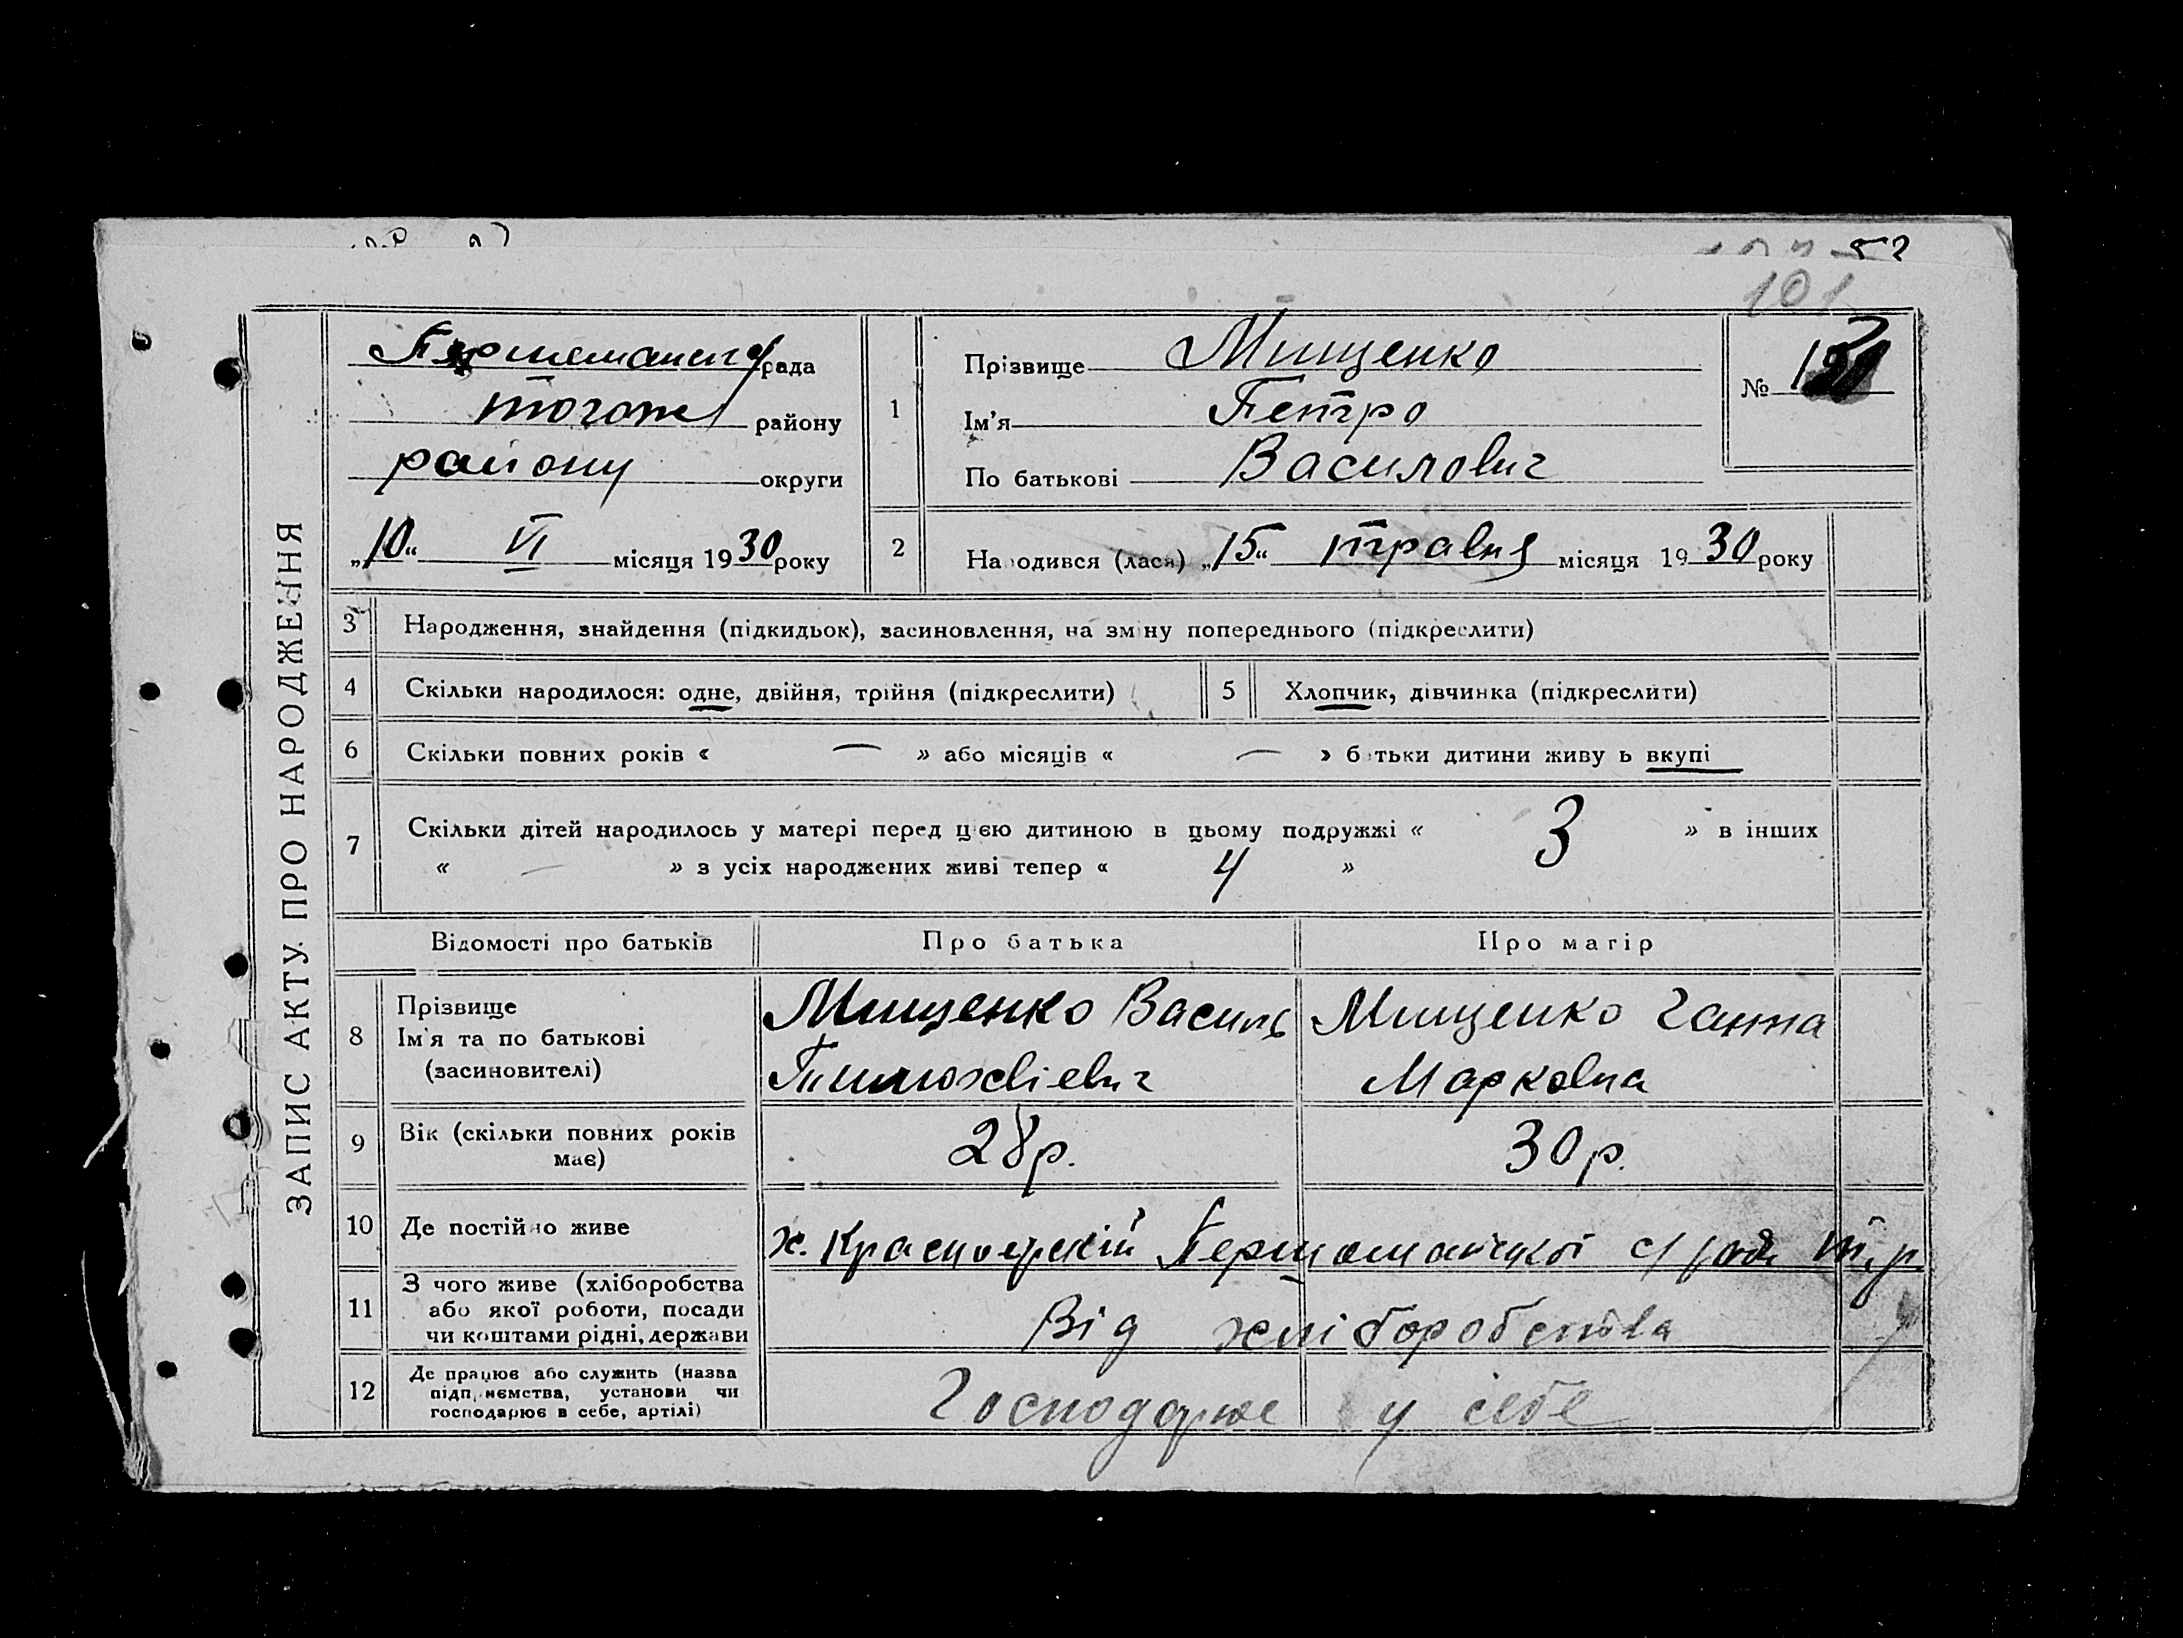 101
ЗАПИС АКТУ ПРО НАРОДЖЕННЯ
рада
тогож району
району округи
„10“ VI місяця 1930 року
1
Прізвище Мищенко
Ім'я Петро
По батькові Василович
№
2 Народився (лася) „15“ травня місяця 1930 року
3 Народження, знайдення (підкидьок), засиновлення, на зміну попереднього (підкреслити)
4 Скільки народилося: одне, двійня, трійня (підкреслити)
5 Хлопчик, дівчинка (підкреслити)
6 Скільки повних років « — » або місяців « — » батьки дитини живуть вкупі
7 Скільки дітей народилось у матері перед цією дитиною в цьому подружжі « 3 » в інших
« — » з усіх народжених живі тепер « 4 »
Відомості про батьків Про батька Про матір
8 Прізвище
Ім'я та по батькові
(засиновителі)
Мищенко Василь
Тимохвієвич
Мищенко Ганна
Марковна
9 Вік (скільки повних років
має)
28 р. 30 р.
10 Де постійно живе х. Першомайської с/ради т. р.
11 З чого живе (хліборобства
або якої роботи, посади
чи коштами рідні, держави
Від хліборобства
12 Де працює або служить (назва
підприємства, установи чи
господарює в себе, артілі)
Господарює у себе